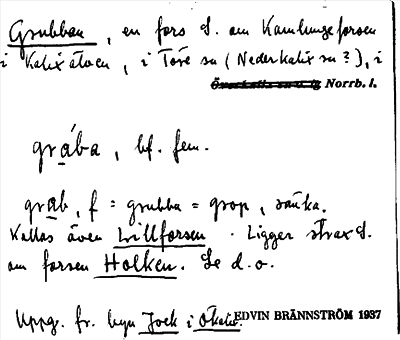 Grubban, en fors S. om Kamlungeforsen
i Kalixälven, i Töre sn (Nederkalix sn?), i
Norrb. l.
gra̱ba, bf. fem.
gra̱b, f = grubba = grop, sänka.
Kallas även Lillforsen. Ligger strax S.
om forsen Holken. Se d.o.
Uppg. fr. byn Jock i Ökalix.
EDVIN BRÄNNSTRÖM 1937